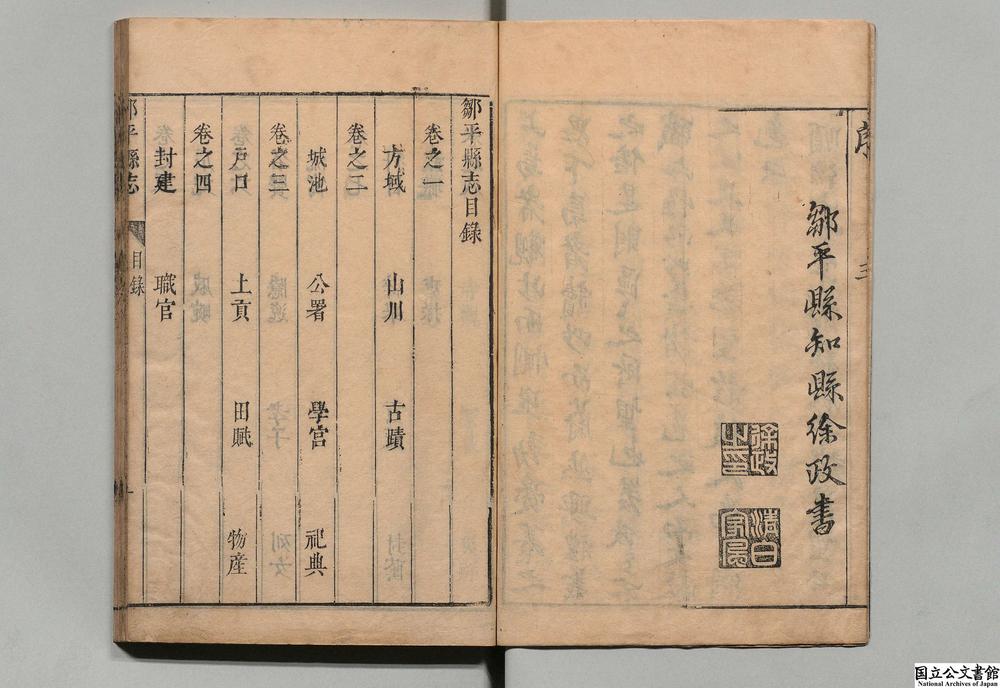 序
三
鄒平縣知縣徐政書
徐政之印
清白
鄒平縣志目錄
卷之一
方域　山川　古蹟
卷之二
城池　公署　學宮　祀典
卷之三
戶口　土貢　田賦　物産
卷之四
封建　職官
鄒平縣志　目錄　一
国立公文書館
National Archives of Japan